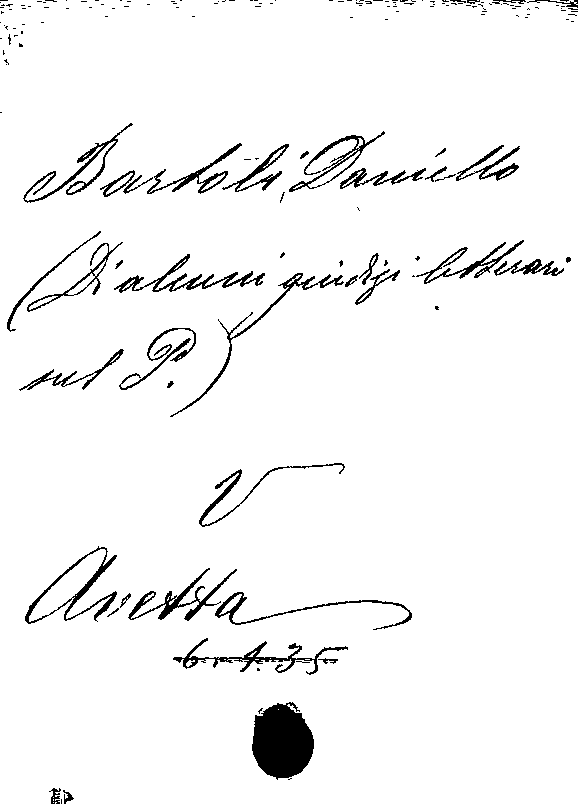 Bartoli, Daniello
(Di alcuni giudizi letterari
sul P.)
V
Avetta
6. 4. 35